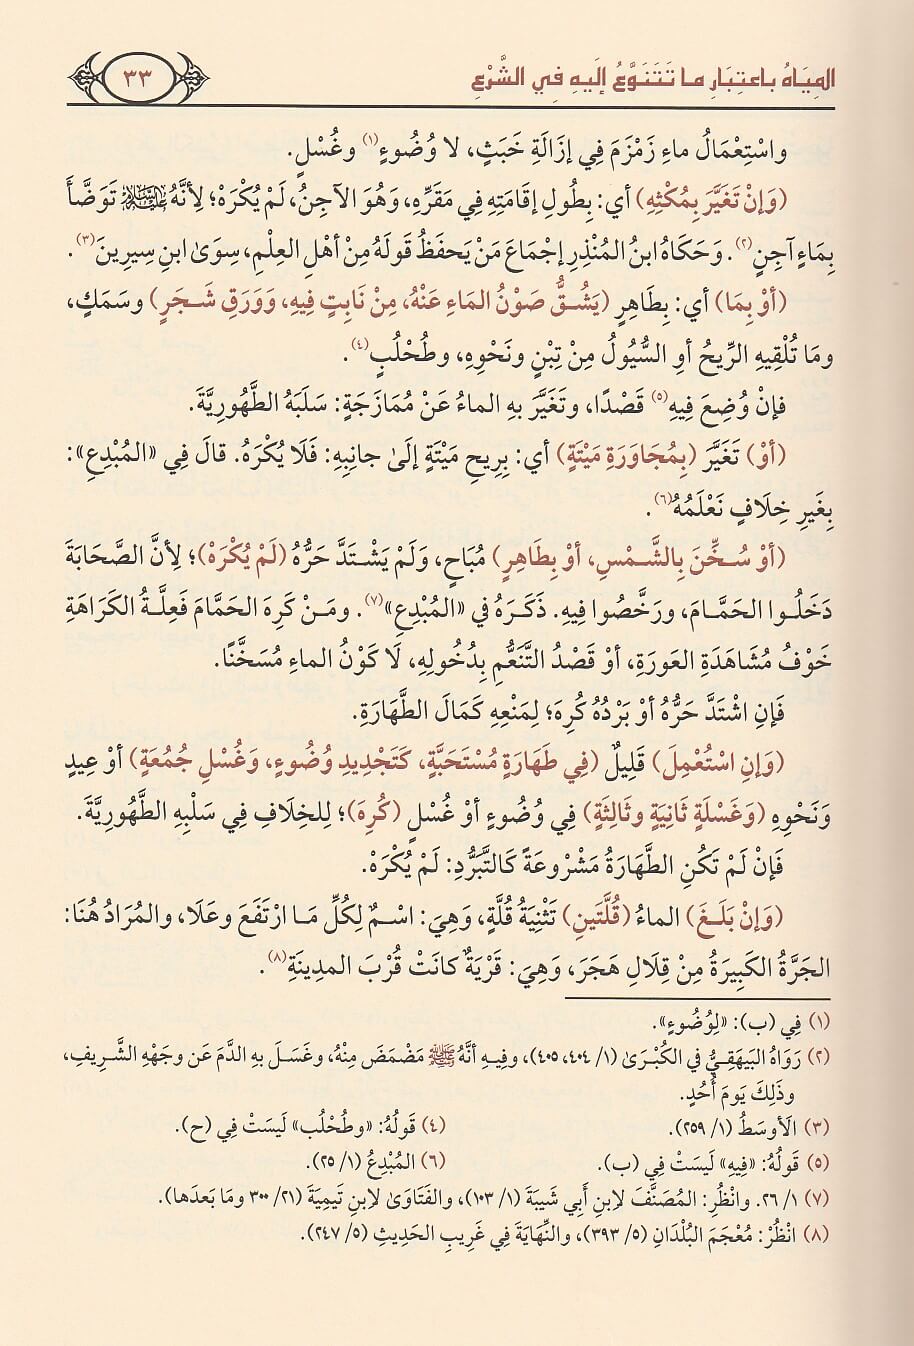 المِيَاهُ بِاعتِبَارِ ما تَتَنَوَّعُ إلَيهِ فِي الشَّرْعِ
٣٣
واسْتِعْمَالُ ماءِ زَمْزَمَ فِي إزَالَةِ خَبَثٍ، لا وُضُوءٍ(١) وغُسْلٍ.
(وَإنْ تَغَيَّرَ بِمُكْثِهِ) أي: بِطُولِ إقَامَتِهِ فِي مَقَرِّهِ، وَهُوَ الآجِنُ، لَمْ يُكْرَهْ؛ لِأنَّهُ عَلَيْهِ السَّلَامُ تَوَضَّأَ
بِمَاءٍ آجِنٍ(٢). وَحَكَاهُ ابنُ المُنْذِرِ إجْمَاعَ مَنْ يَحفَظُ قَولَهُ مِنْ أهْلِ العِلْمِ، سِوَىٰ ابنِ سِيرِينَ(٣).
(أوْ بِمَا) أي: بِطَاهِرٍ (يَشُقُّ صَوْنُ المَاءِ عَنْهُ، مِنْ نَابِتٍ فِيهِ، وَوَرَقِ شَجَرٍ) وسَمَكٍ،
ومَا تُلْقِيهِ الرِّيحُ أوِ السُّيُولُ مِنْ تِبْنٍ ونَحْوِهِ، وطُحْلُبٍ(٤).
فإنْ وُضِعَ فِيهِ(٥) قَصْدًا، وتَغَيَّرَ بهِ الماءُ عَنْ مُمَازَجَةٍ: سَلَبَهُ الطَّهُورِيَّةَ.
(أوْ) تَغَيَّرَ (بِمُجَاوَرَةِ مَيْتَةٍ) أي: بِرِيحِ مَيْتَةٍ إلَىٰ جانِبِهِ: فَلَا يُكْرَهُ. قالَ فِي «المُبْدِعِ»:
بِغَيرِ خِلَافٍ نَعْلَمُهُ(٦).
(أوْ سُخِّنَ بِالشَّمْسِ، أوْ بِطَاهِرٍ) مُبَاحٍ، وَلَمْ يَشْتَدَّ حَرُّهُ (لَمْ يُكْرَهْ)؛ لِأنَّ الصَّحَابَةَ
دَخَلُوا الحَمَّامَ، ورَخَّصُوا فِيهِ. ذَكَرَهُ فِي «المُبْدِعِ»(٧). ومَنْ كَرِهَ الحَمَّامَ فَعِلَّةُ الكَرَاهَةِ
خَوْفُ مُشَاهَدَةِ العَورَةِ، أوْ قَصْدُ التَّنَعُّمِ بِدُخُولِهِ، لَا كَوْنُ الماءِ مُسَخَّنًا.
فَإنِ اشْتَدَّ حَرُّهُ أوْ بَرْدُهُ كُرِهَ؛ لِمَنْعِهِ كَمَالَ الطَّهَارَةِ.
(وَإنِ اسْتُعْمِلَ) قَلِيلٌ (فِي طَهَارَةٍ مُسْتَحَبَّةٍ، كَتَجْدِيدِ وُضُوءٍ، وَغُسْلِ جُمُعَةٍ) أوْ عِيدٍ
وَنَحْوِهِ (وَغَسْلَةٍ ثَانِيَةٍ وثَالِثَةٍ) فِي وُضُوءٍ أوْ غُسْلٍ (كُرِهَ)؛ لِلخِلَافِ فِي سَلْبِهِ الطَّهُورِيَّةَ.
فَإنْ لَمْ تَكُنِ الطَّهَارَةُ مَشْرُوعَةً كَالتَّبَرُّدِ: لَمْ يُكْرَهْ.
(وَإنْ بَلَغَ) الماءُ (قُلَّتَينِ) تَثْنِيَةُ قُلَّةٍ، وَهِيَ: اسْمٌ لِكُلِّ مَا ارْتَفَعَ وعَلَا، والمُرَادُ هُنَا:
الجَرَّةُ الكَبِيرَةُ مِنْ قِلَالِ هَجَرَ، وَهِيَ: قَرْيَةٌ كانَتْ قُرْبَ المدِينَةِ(٨).
(١) فِي (ب): «لِوُضُوءٍ».
(٢) رَوَاهُ البَيهَقِيُّ في الكُبْرَىٰ (١/ ٤٠٤، ٤٠٥)، وفِيهِ أنَّهُ ﷺ مَضْمَضَ مِنْهُ، وغَسَلَ بهِ الدَّمَ عَن وجَهْهِ الشَّرِيفِ،
وذَلِكَ يَومَ أُحُدٍ.
(٣) الأوسَطُ (١/ ٢٥٩).
(٤) قَولُهُ: «وطُحْلُب» لَيسَتْ فِي (ح).
(٥) قَولُهُ: «فِيهِ» لَيسَتْ فِي (ب).
(٦) المُبْدِعُ (١/ ٢٥).
(٧) ١/ ٢٦. وانْظُرِ: المُصَنَّفَ لِابنِ أبِي شَيبَةَ (١/ ١٠٣)، والفَتَاوَىٰ لِابنِ تَيمِيَةَ (٢١/ ٣٠٠ ومَا بَعدَها).
(٨) انْظُرْ: مُعْجَمَ البُلْدَانِ (٥/ ٣٩٣)، والنِّهَايَةَ فِي غَرِيبِ الحَدِيثِ (٥/ ٢٤٧).